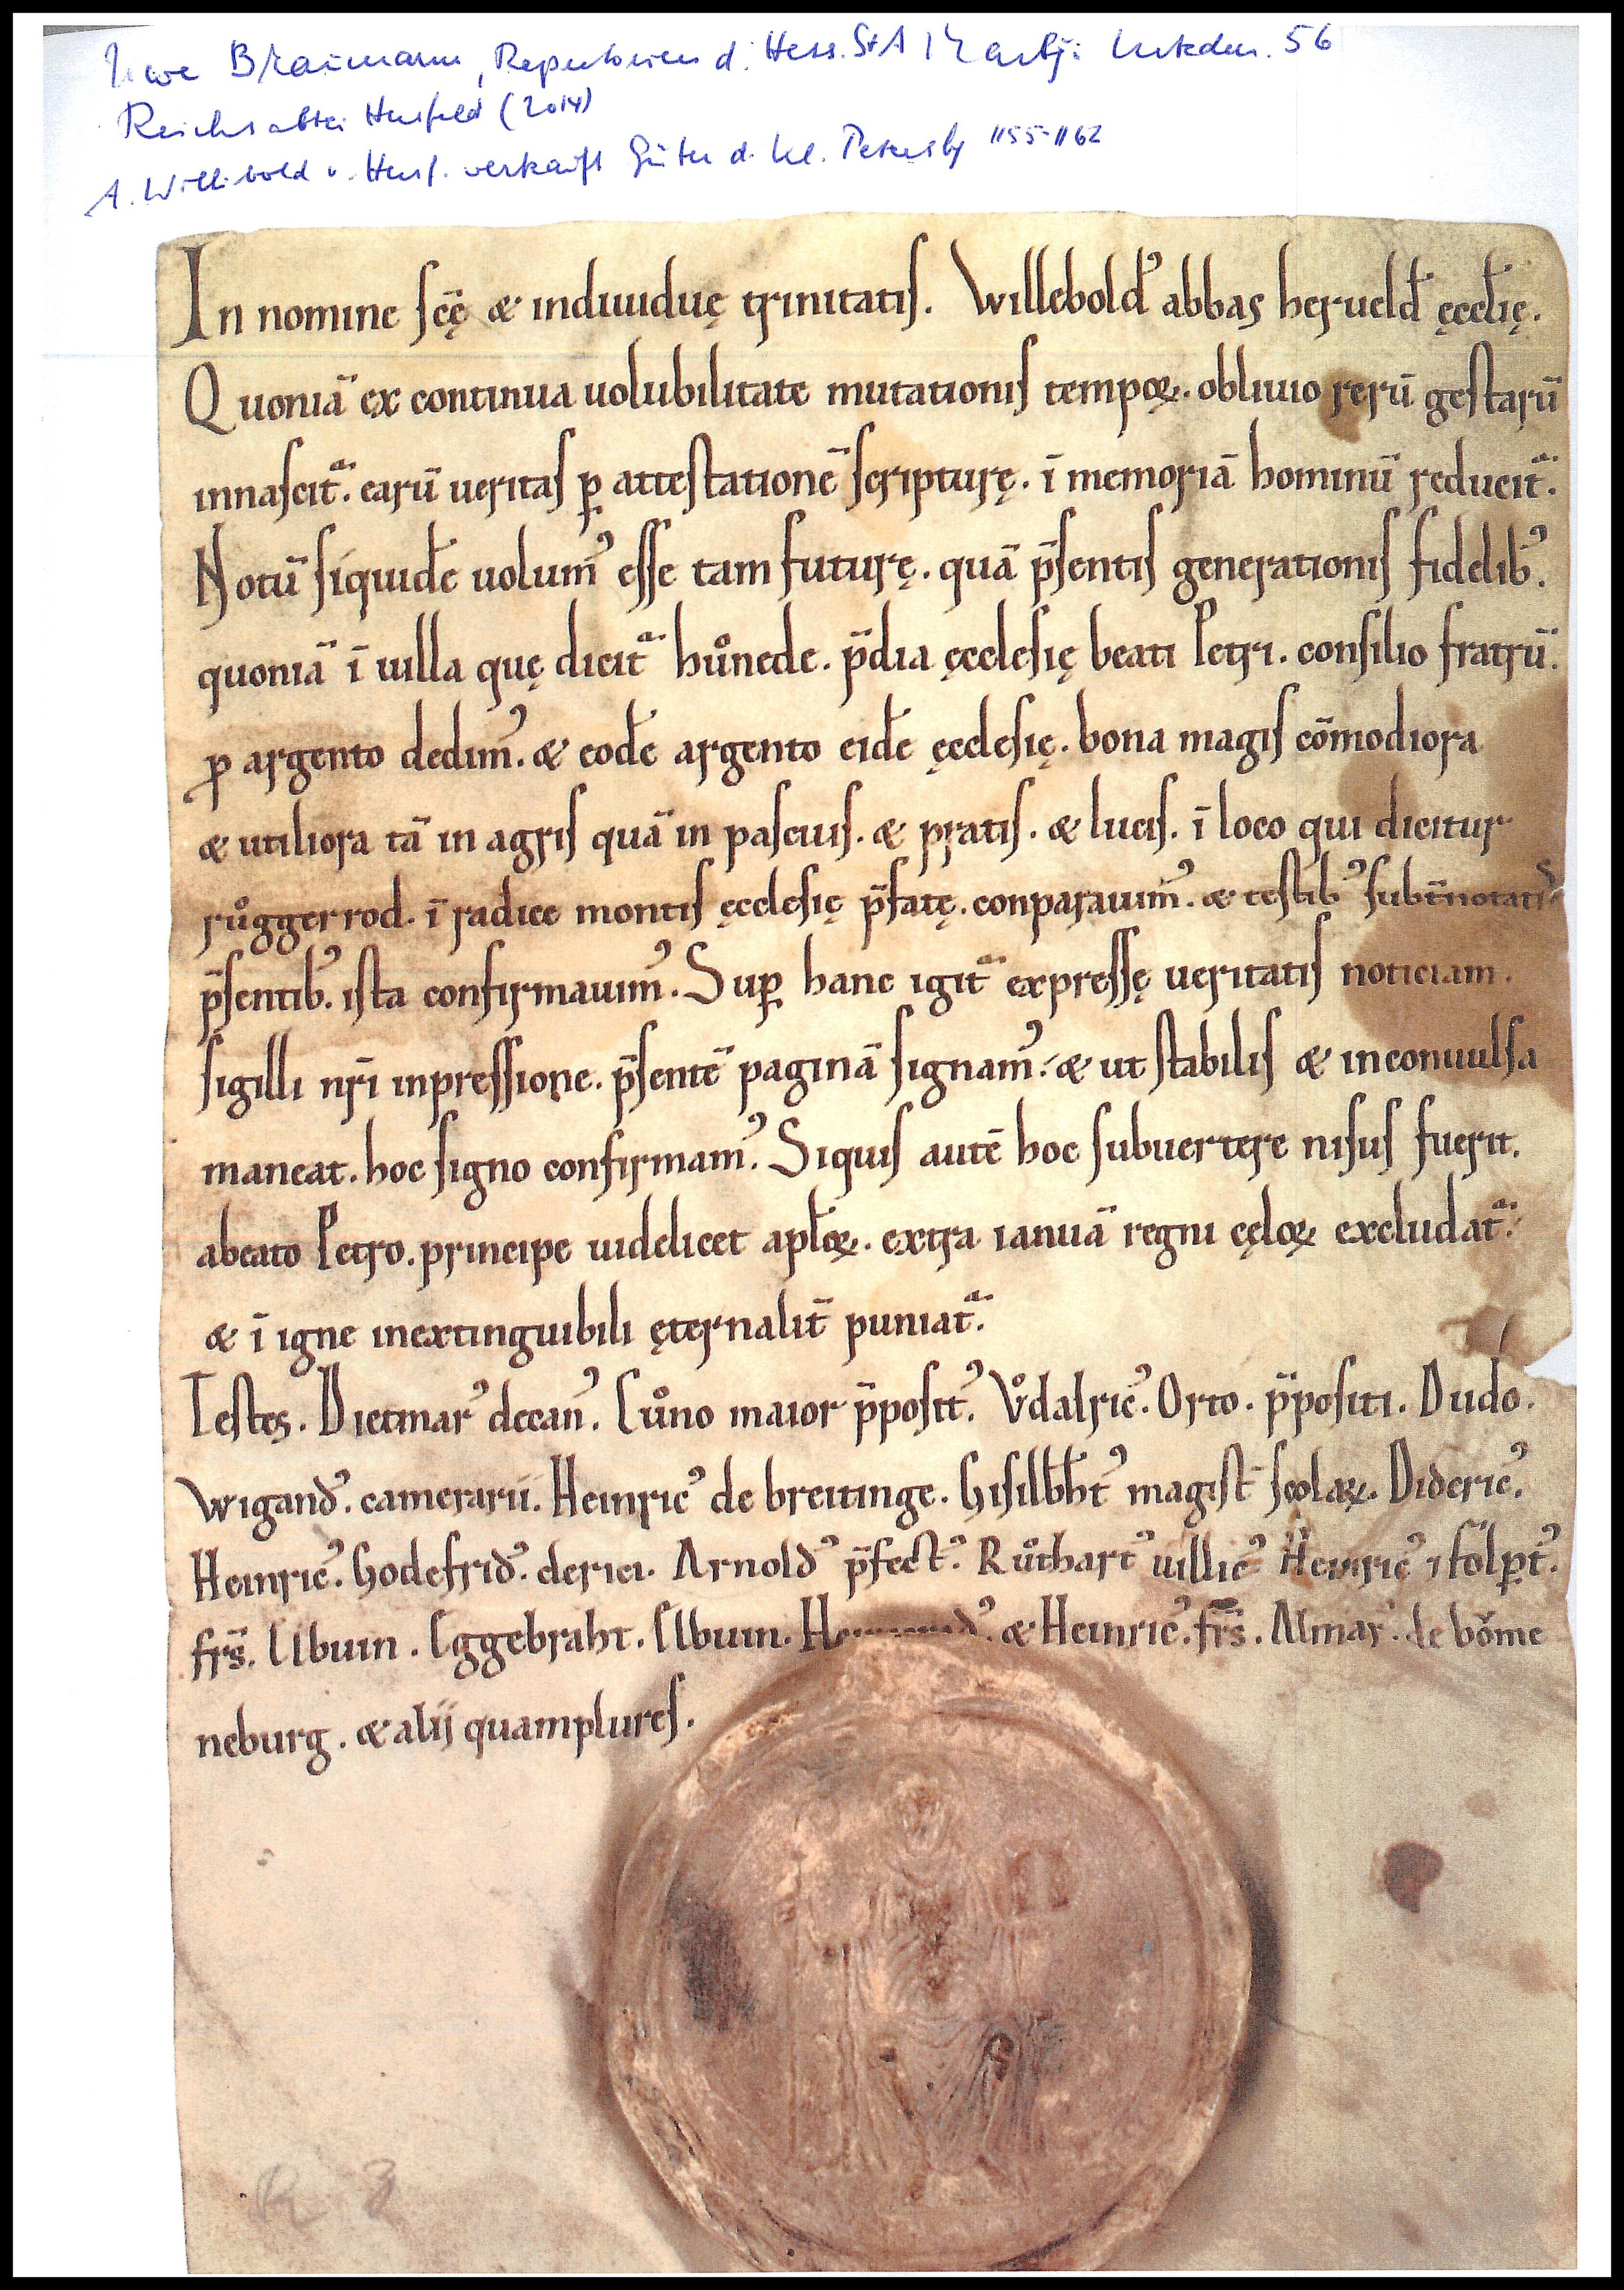 Uwe Braumann, Repertorien d. Hess. StA Marbg: Urkden. 56
Reichsabtei Hersfeld (2014)
A. Willibold v. Hersf. verkauft Güter d. Kl. Petersbg 1155-1162
In nomine sc̄ę & indiuiduę trinitatis. Willebold᾿ abbas herueld̄ ęccl̄ię.
Quoniā ex continua uolubilitate mutationis tempoꝝ. obliuio rerū gestarū
innascit᷑. earū ueritas ꝑ attestationē scripturę. ī memoriā hominū reducit᷑.
Notū siquidē uolum᾿ esse tam futurę. quā p̄sentis generationis fidelib᾿.
quoniā ī uilla quę dicit᷑ hůnede. p̄dia ęcclesię beati Petri. consilio fratrū.
ꝓ argento dedim᾿. & eodē argento eidē ęcclesię. bona magis cōmodiora
& utiliora tā in agris quā in pascuis. & pratis. & lucis. ī loco qui dicitur
růggerrod. ī radice montis ęcclesię p̄fatę. conparauim᾿. & testib᾿ subt̄notatis
p̄sentib᾿. ista confirmauim᾿. Suꝑ hanc igit᷑ expressę ueritatis noticiam.
sigilli nr̄i inpressione. p̄sentē paginā signam᾿. & ut stabilis & inconuulsa
maneat. hoc signo confirmam᾿. Siquis autē hoc subuertere nisus fuerit.
abeato Petro. principe uidelicet apl̄oꝝ. extra ianuā regni cęloꝝ excludat᷑.
& ī igne inextinguibili ęternalit̄ puniat᷑.
Testes. Dietmar᾿ decan᾿. Cůno maior p̄posit᾿. Vͦdalric᾿. Orto. p̄positi. Dudo.
Wigand᾿. camerarii. Heinric᾿ de breitinge. Gisilbh̄t᾿ magist̄ scolaꝝ. Dideric᾿.
Heinric᾿. Godefrid᾿. clerici. Arnold᾿ p̄fect᾿. Růthart᾿ uillic᾿ Heinric᾿ ⁊ folꝑt᾿.
frs̄. Albuin. Eggebraht. Albuin. & Heinric᾿. frs̄. Almar᾿. de bǒme
neburg. & alij quamplures.